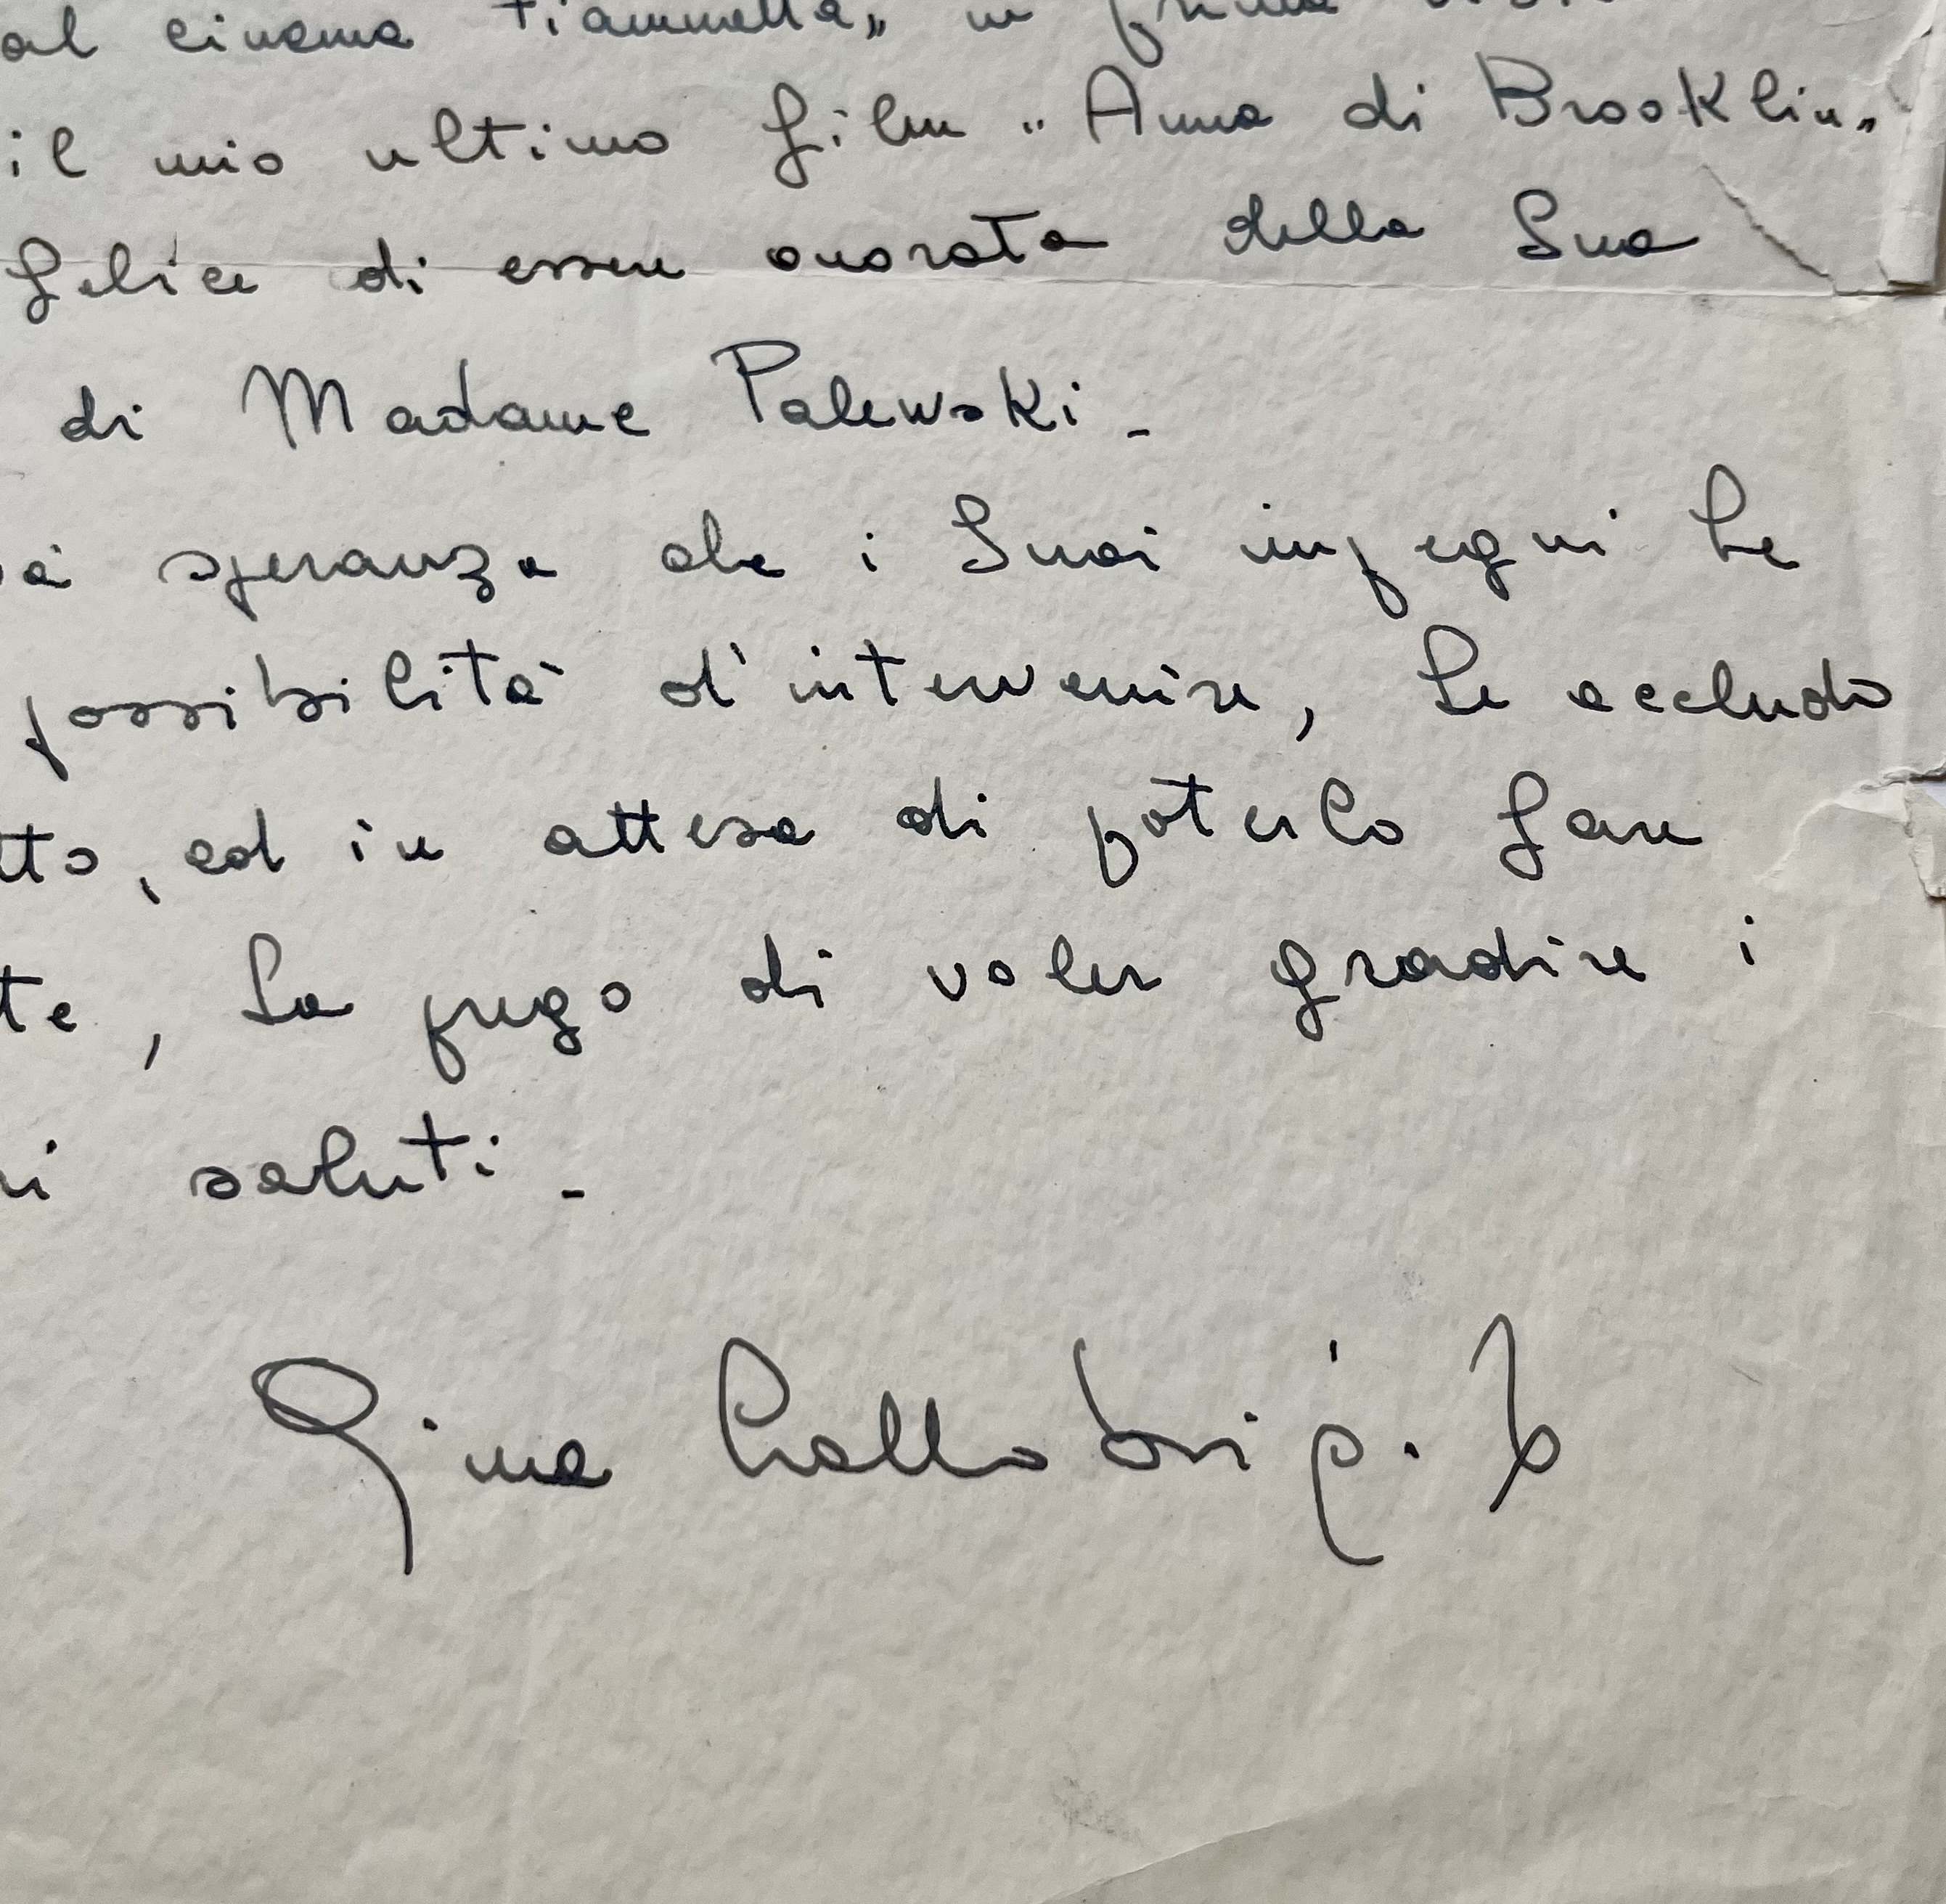 al cinema Fiammetta„ in prima
il mio ultimo film „Anna di BrooKlin„
felice di essere onorata della Sua
di Madame PalewsKi -
speranza che i Suoi impegni Le
possibilità d'intervenire, Le accludo
tto, ed in attesa di poterlo fare
te, La prego di voler gradire i
ri saluti -
Gina Lollobrigida